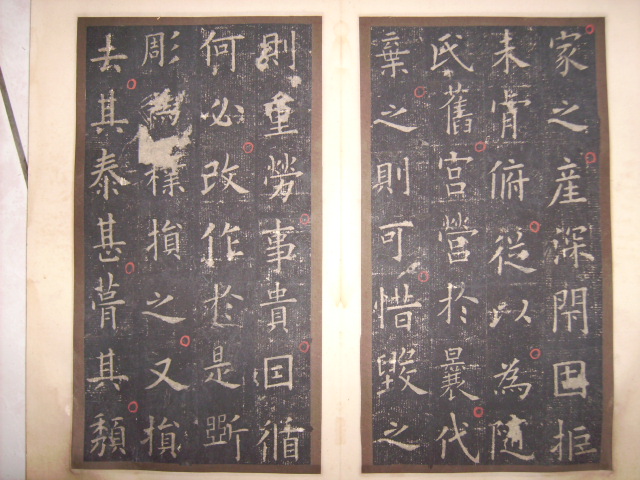 家之產深閇固拒
未肯俯從以為隨
氏舊宮營於曩代
棄之則可惜毀之
則重勞事貴因循
何必改作於是斲
彫為樸損之又損
去其泰甚葺其頹